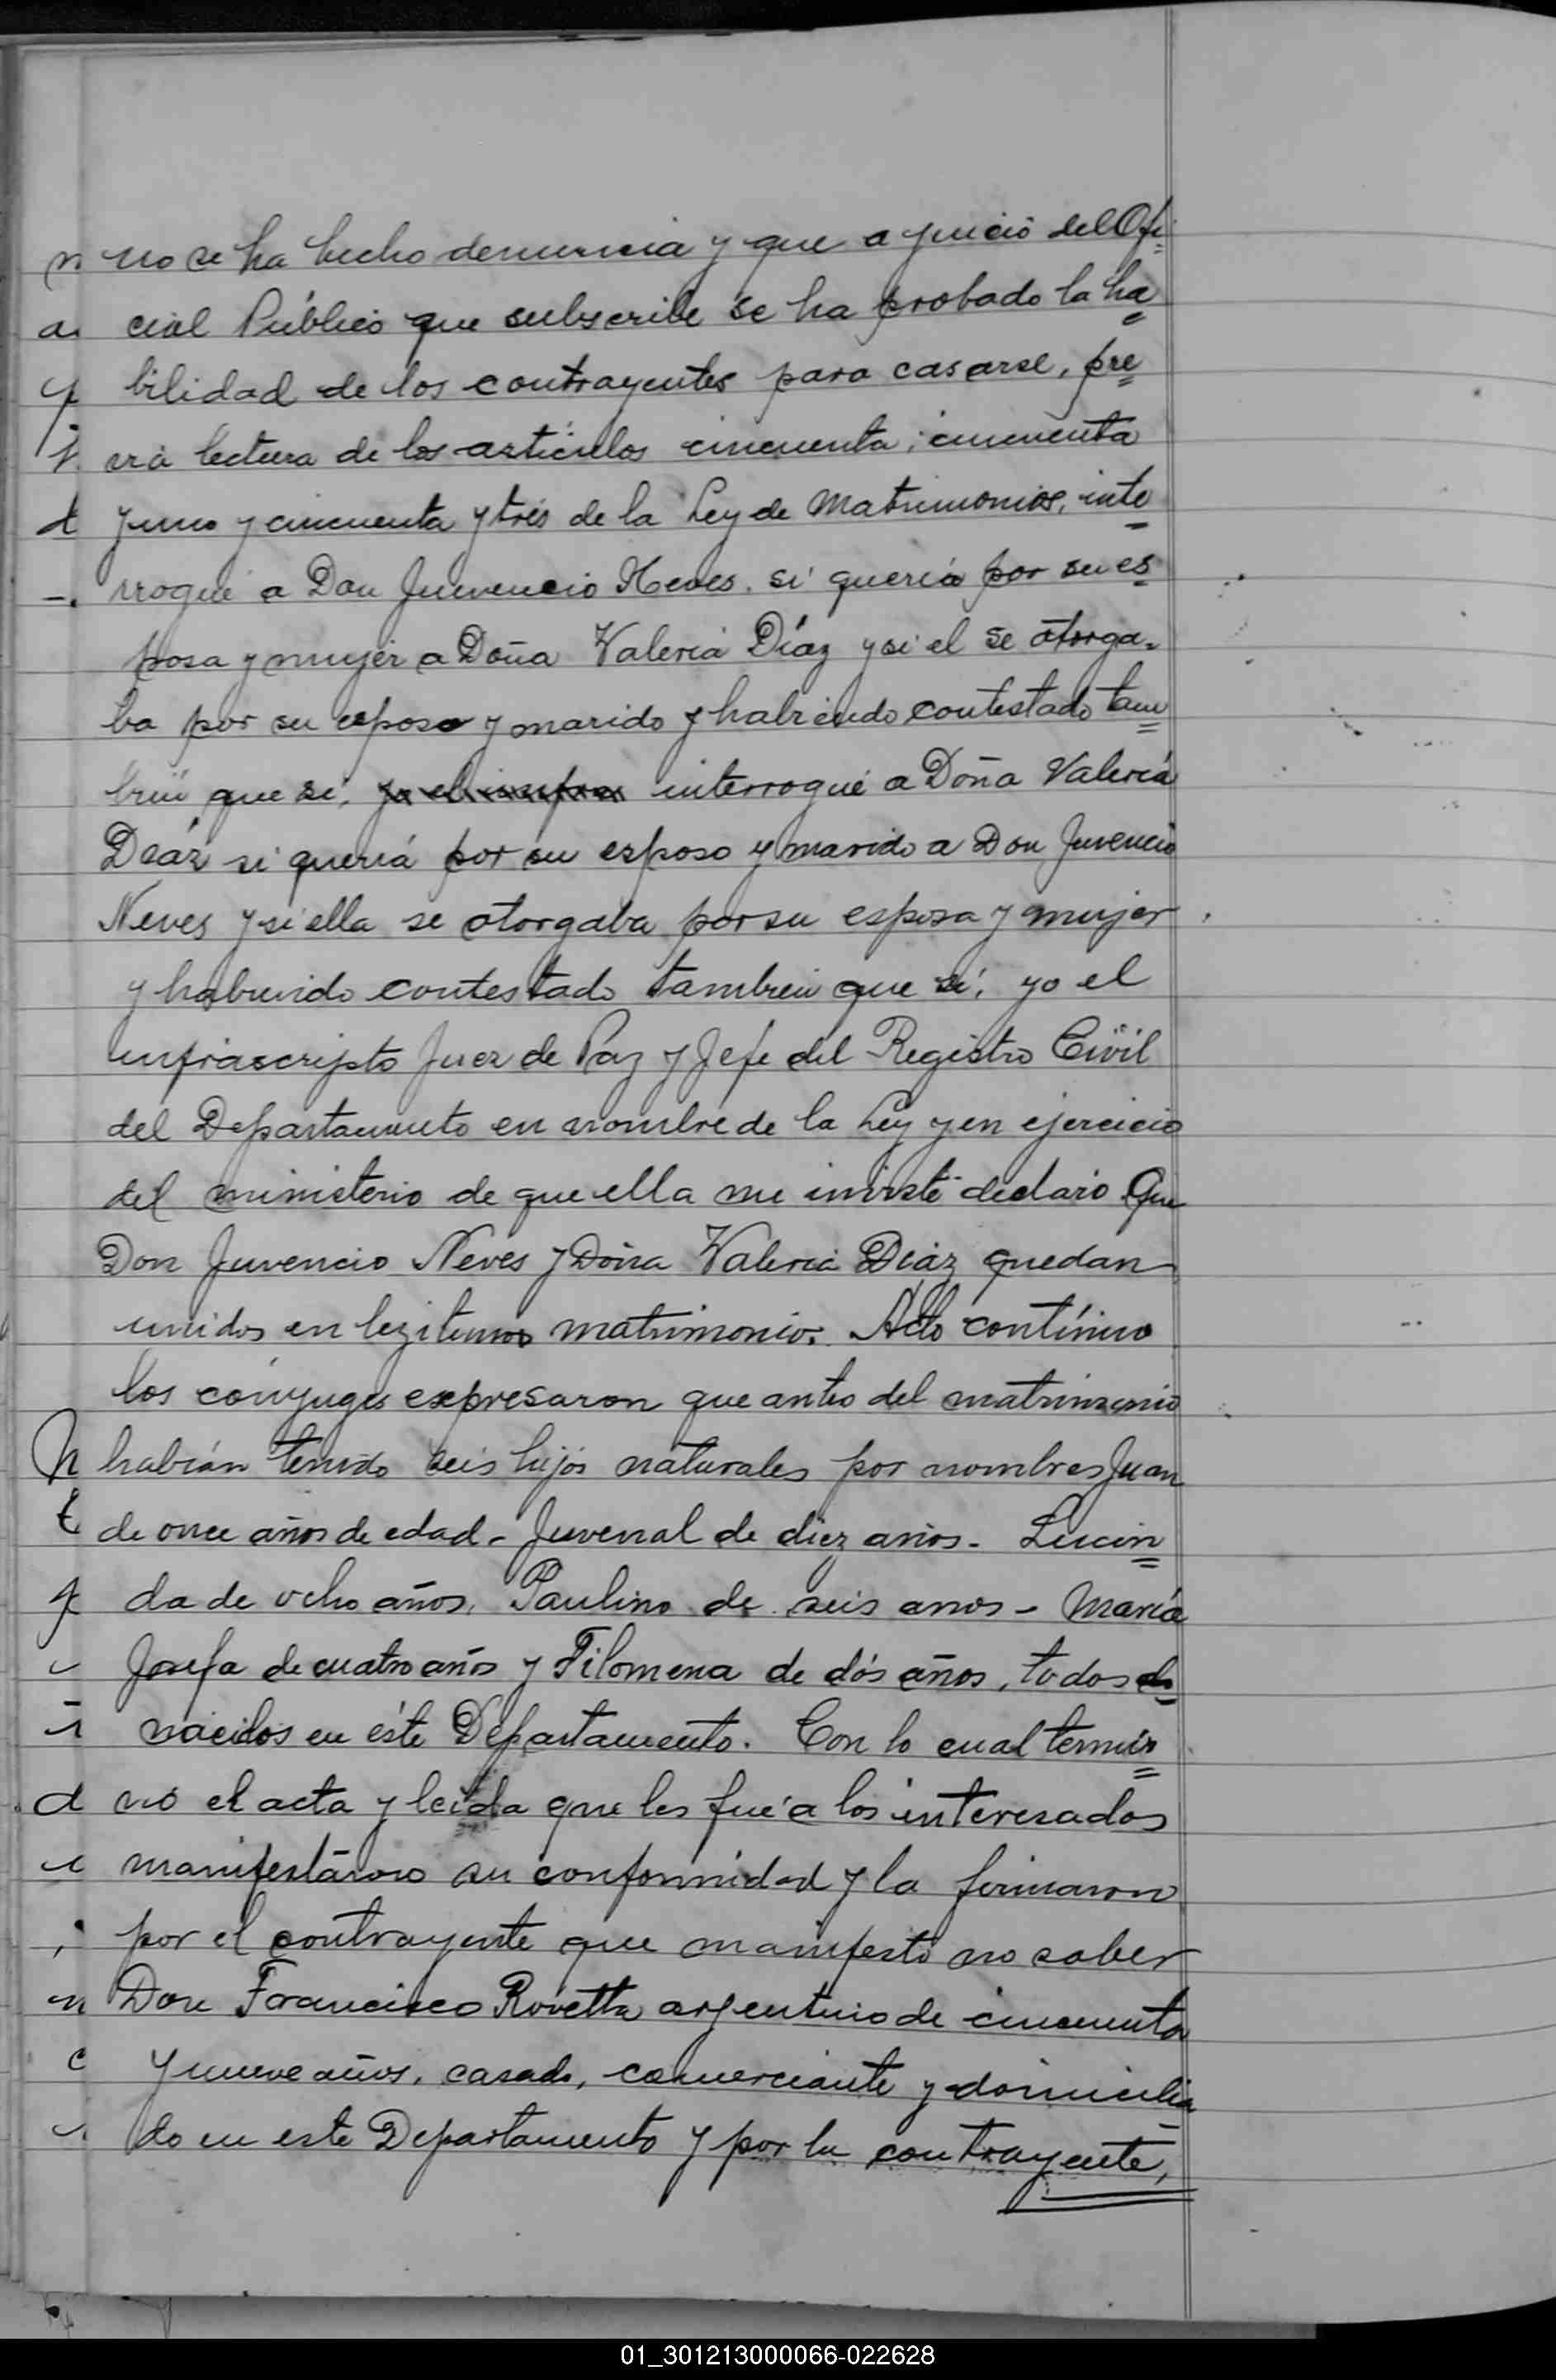 no se ha hecho denuncia y que a juicio del Ofi=
cial Público que subscribe se ha probado la ha=
bilidad de los contrayentes para casarse, pre=
via lectura de los artículos cincuenta; cincuenta
y uno y cincuenta y trés de la Ley de Matrimonios, inte-
rrogué a Don Juvencio Neves. si quería por su es-
posa y mujer a Doña Valeria Díaz y si el se otorga-
ba por su esposo y marido y habiendo contestado tam=
bién que si, interrogué a Doña Valeria
Díaz si quería por su esposo y marido a Don Juvencio
Neves y si ella se otorgaba por su esposa y mujer
y habiendo contestado también que si, yo el
infrascripto Juez de Paz y Jefe del Registro Civil
del Departamento en nombre de la Ley y en ejercicio
del ministerio de que ella me inviste declaro que
Don Juvencio Neves y Doña Valeria Díaz quedan
unidos en legitimo matrimonio. Acto contínuo
los cónyuges expresaron que antes del matrimonio
habían tenido seis hijos naturales por nombres Juan
de once años de edad - Juvenal de diez años - Lucin=
da de ocho años, Paulino de seis anos - María
Josefa de cuatro años y Filomena de dós años, todos
nacidos en éste Departamento. Con lo cual termi=
nó el acta y leída que les fué a los interesados
manifestáron su conformidad y la firmaron
por el contrayente que manifestó no saber
Don Francisco Rovetta argentino de cincuenta
y nueve años, casado, comerciante y domicilia-
do en este Departamento y por la contrayente,
01_301213000066-022628